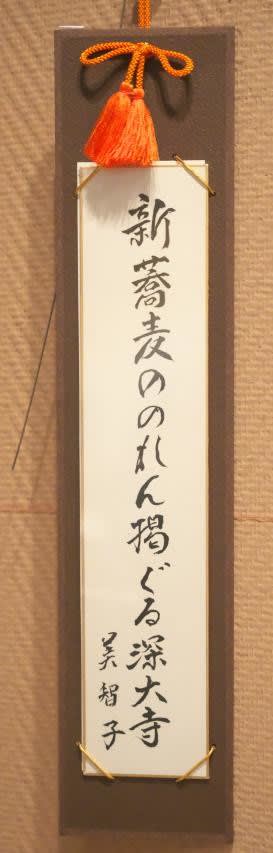 新蕎麦ののれん掲ぐる深大寺
美智子